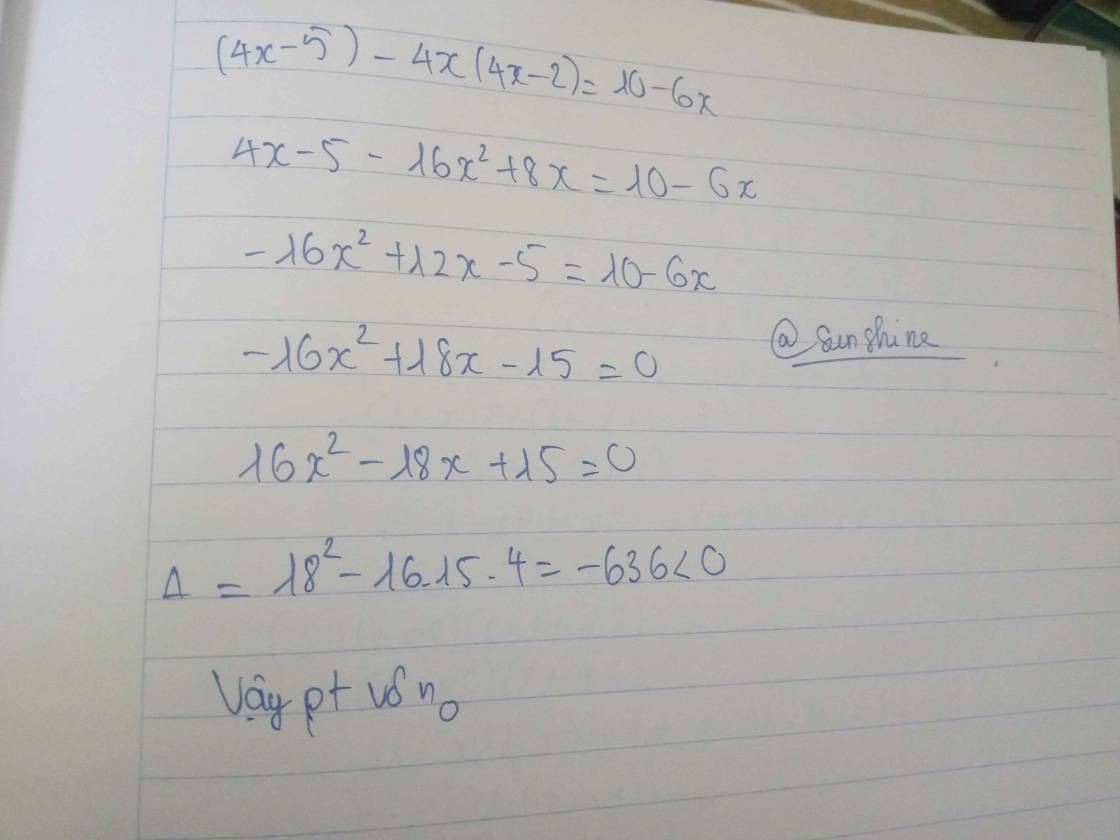 (4x-5) - 4x(4x-2) = 10-6x
4x-5 - 16x² +8x = 10 - 6x
-16x² +12x -5 = 10-6x
-16x² +18x -15 = 0
@sunshine
16x² - 18x +15 = 0
Δ = 18² - 16.15.4 = -636 < 0
Vậy pt vô n₀